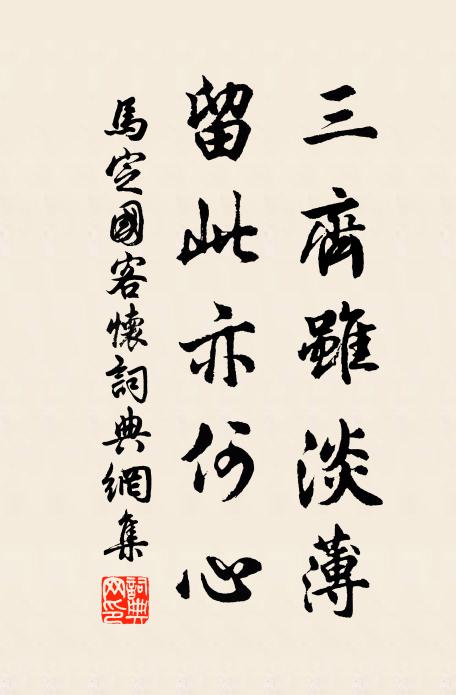 三齊雖淡薄
留此亦何心
馬定國客懷詞典網集
詞典網印